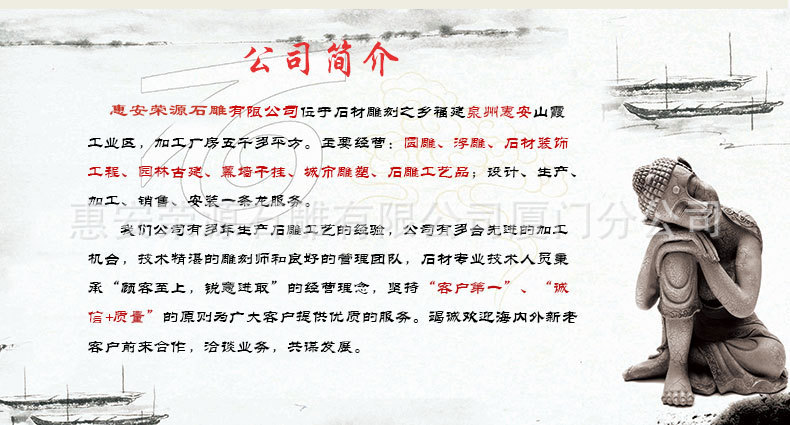 公司简介
惠安荣源石雕有限公司位于石材雕刻之乡福建泉州惠安山霞
工业区，加工厂房五千多平方。主要经营：圆雕、浮雕、石材装饰
工程、园林古建、幕墙干挂、城市雕塑、石雕工艺品；设计、生产、
加工、销售、安装一条龙服务。
惠安荣源石雕有限公司厦门分公司
我们公司有多年生产石雕工艺的经验，公司有多台先进的加工
机台，技术精湛的雕刻师和良好的管理团队，石材专业技术人员秉
承“顾客至上，锐意进取”的经营理念，坚持“客户第一”、“诚
信+质量”的原则为广大客户提供优质的服务。竭诚欢迎海内外新老
客户前来合作，洽谈业务，共谋发展。